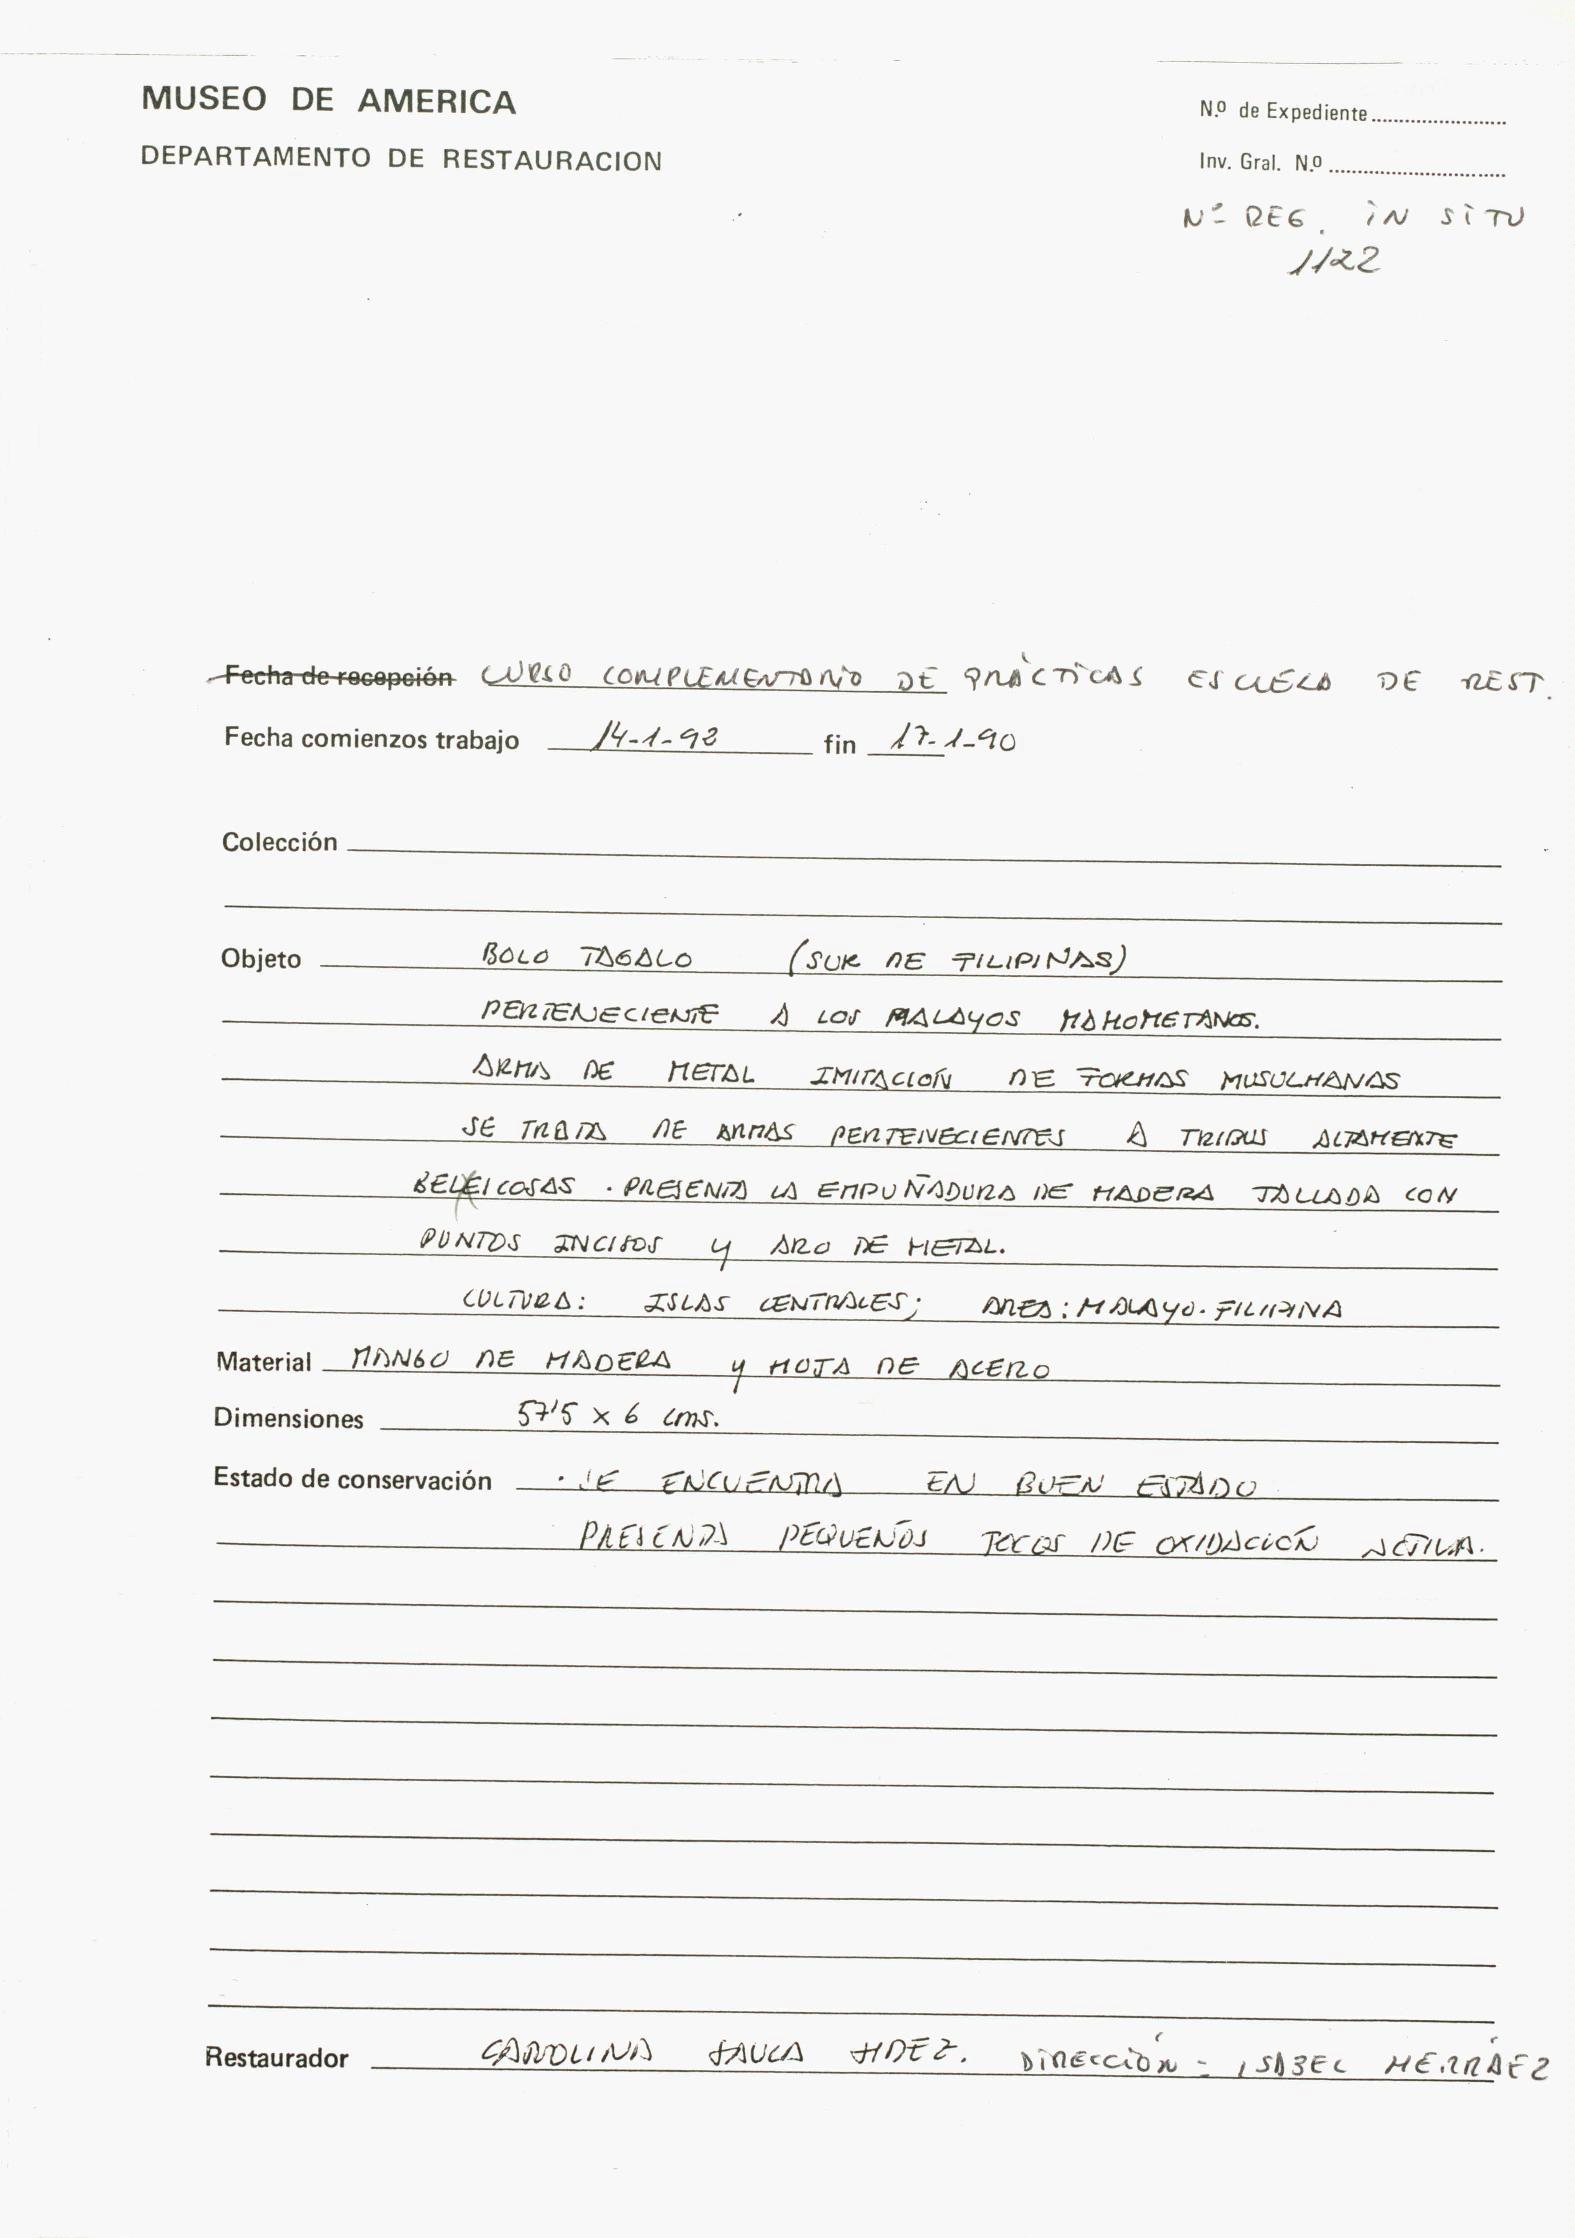 MUSEO DE AMERICA
DEPARTAMENTO DE RESTAURACION
N.º de Expediente
Inv. Gral. N.º
Nº REG. IN SITU
1122
Fecha de recepción CURSO COMPLEMENTARIO DE PRÁCTICAS ESCUELA DE REST.
Fecha comienzos trabajo 14-1-92 fin 17-1-90
Colección
Objeto BOLO TAGALO (SUR DE FILIPINAS)
PERTENECIENTE A LOS MALAYOS MAHOMETANOS.
ARMA DE METAL IMITACIÓN DE FORMAS MUSULMANAS
SE TRATA DE ARMAS PERTENECIENTES A TRIBUS ALTAMENTE
BELEICOSAS . PRESENTA LA EMPUÑADURA DE MADERA TALLADA CON
PUNTOS INCISOS Y ARO DE METAL.
CULTURA: ISLAS CENTRALES; AREA: MALAYO-FILIPINA
Material MANGO DE MADERA Y HOJA DE ACERO
Dimensiones 57'5 x 6 cms.
Estado de conservación . SE ENCUENTRA EN BUEN ESTADO
PRESENTA PEQUEÑOS FOCOS DE OXIDACIÓN ACTIVA.
Restaurador CAROLINA HDEZ. DIRECCIÓN - ISABEL HERRÁEZ